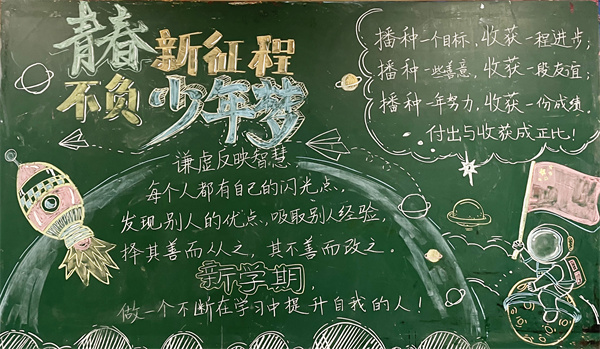 青春新征程
不负少年梦
播种一个目标,收获一程进步;
播种一些善意,收获一段友谊;
播种一年努力,收获一份成绩.
付出与收获成正比!
谦虚反映智慧
每个人都有自己的闪光点,
发现别人的优点,吸取别人经验,
择其善而从之,其不善而改之.
新学期,
做一个不断在学习中提升自我的人!